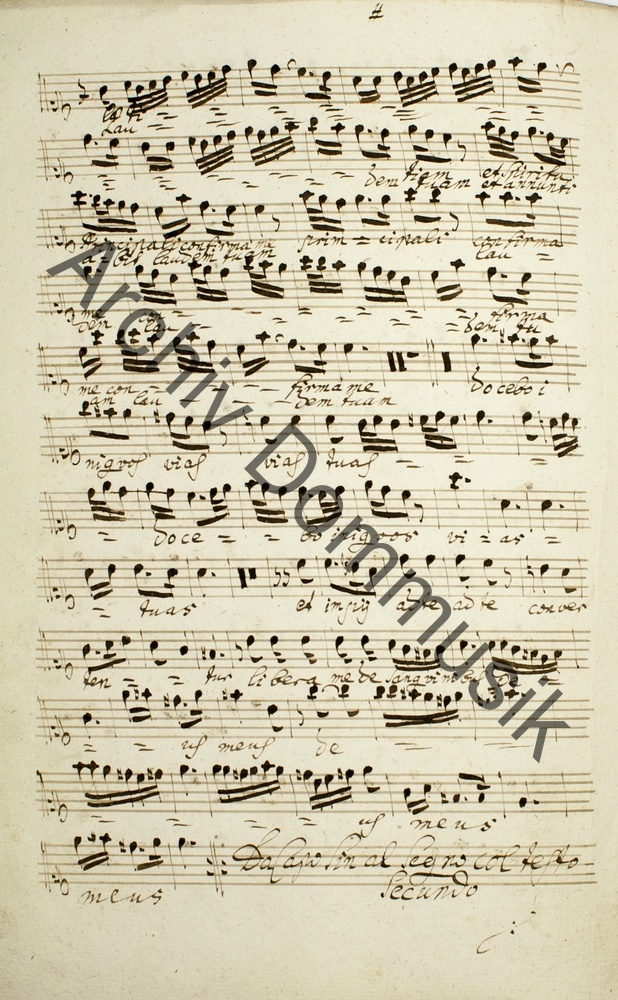 Lau
dem tuam et spiritu
tuam et annunti
principali confirma me prim = cipali confirma
a = bit laudem tuam lau =
me firma
dem lau dem tu
me con firma me docebo i
am lau dem tuam
niquos vias vias tuas
doce bo iniquos vi = as =
tuas et impij ad te ad te conver
ten = tur libera me de sanguini
us meus de
us meus
Da Capo sin al Segno col testo
meus Secundo
Archiv Dommusik